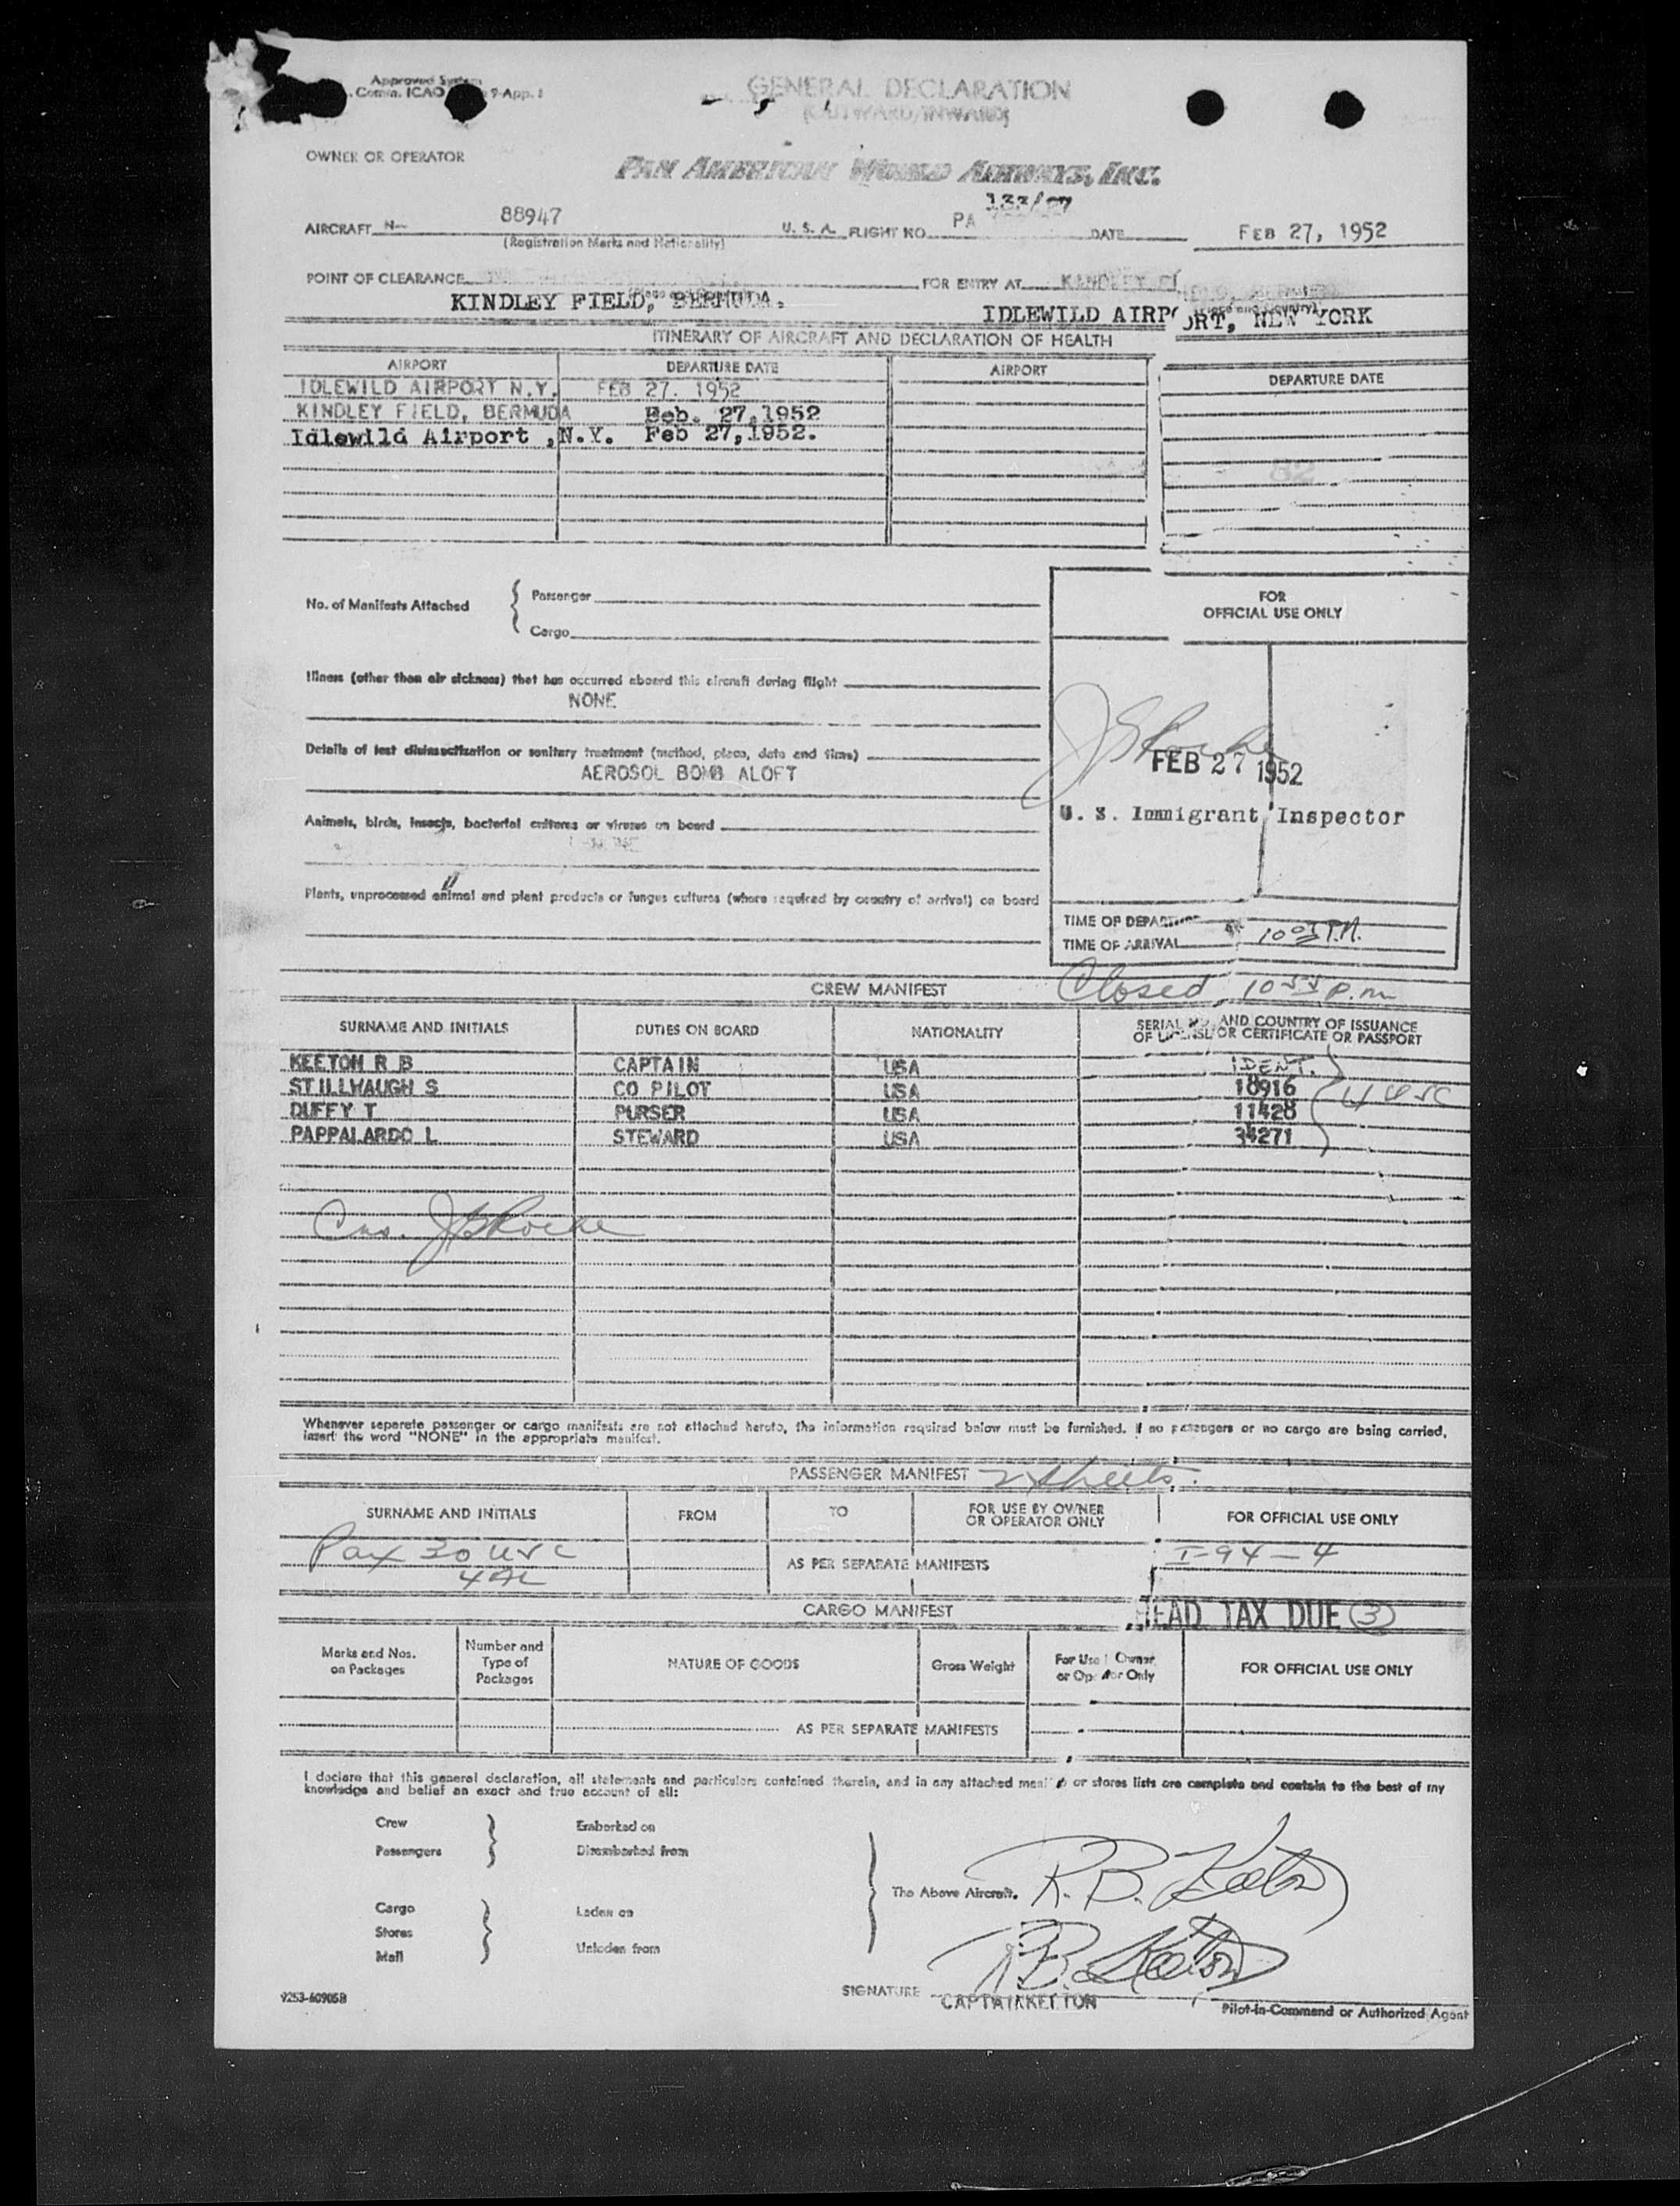 Approved System
Comm. ICAO 9-App. 1
GENERAL DECLARATION
(OUTWARD/INWARD)
OWNER OR OPERATOR
PAN AMERICAN WORLD AIRWAYS, INC.
133/27
AIRCRAFT N- 88947 U. S. A. FLIGHT NO. PA DATE FEB 27, 1952
(Registration Marks and Nationality)
POINT OF CLEARANCE FOR ENTRY AT KINDLEY
KINDLEY FIELD, BERMUDA. IDLEWILD AIRPORT, NEW YORK
ITINERARY OF AIRCRAFT AND DECLARATION OF HEALTH
AIRPORT DEPARTURE DATE AIRPORT DEPARTURE DATE
IDLEWILD AIRPORT N.Y. FEB 27. 1952
KINDLEY FIELD, BERMUDA Feb. 27,1952
Idlewild Airport ,N.Y. Feb 27,1952.
82
No. of Manifests Attached
Passenger
Cargo
FOR
OFFICIAL USE ONLY
Illness (other than air sickness) that has occurred aboard this aircraft during flight
NONE
Details of last disinsectization or sanitary treatment (method, place, date and time)
AEROSOL BOMB ALOFT
FEB 27 1952
U. S. Immigrant Inspector
Animals, birds, insects, bacterial cultures or viruses on board
Plants, unprocessed animal and plant products or fungus cultures (where required by country of arrival) on board
TIME OF DEPARTURE
TIME OF ARRIVAL 10 05 P.M.
CREW MANIFEST Closed 10 55 p.m
SURNAME AND INITIALS DUTIES ON BOARD NATIONALITY SERIAL NO. AND COUNTRY OF ISSUANCE
OF LICENSE OR CERTIFICATE OR PASSPORT
KEETON R B CAPTAIN USA IDENT.
STILLWAUGH S CO PILOT USA 18916
DUFFY T PURSER USA 11428
PAPPALARDO L STEWARD USA 34271
4 USC
Whenever separate passenger or cargo manifests are not attached hereto, the information required below must be furnished. If no passengers or no cargo are being carried,
insert the word "NONE" in the appropriate manifest.
PASSENGER MANIFEST 2 sheets.
SURNAME AND INITIALS FROM TO FOR USE BY OWNER
OR OPERATOR ONLY FOR OFFICIAL USE ONLY
Pax 30 USC
AS PER SEPARATE MANIFESTS I-94-4
CARGO MANIFEST
HEAD TAX DUE 3
Marks and Nos.
on Packages Number and
Type of
Packages NATURE OF GOODS Gross Weight For Use Owner
or Operator Only FOR OFFICIAL USE ONLY
AS PER SEPARATE MANIFESTS
I declare that this general declaration, all statements and particulars contained therein, and in any attached manifests or stores lists are complete and contain to the best of my
knowledge and belief an exact and true account of all:
Crew Embarked on
Passengers Disembarked from
The Above Aircraft. R. B. Keeton
Cargo Laden on
Stores
Mail Unladen from
R B. Keeton
SIGNATURE CAPTAIN KEETON
9253-60905B Pilot-in-Command or Authorized Agent